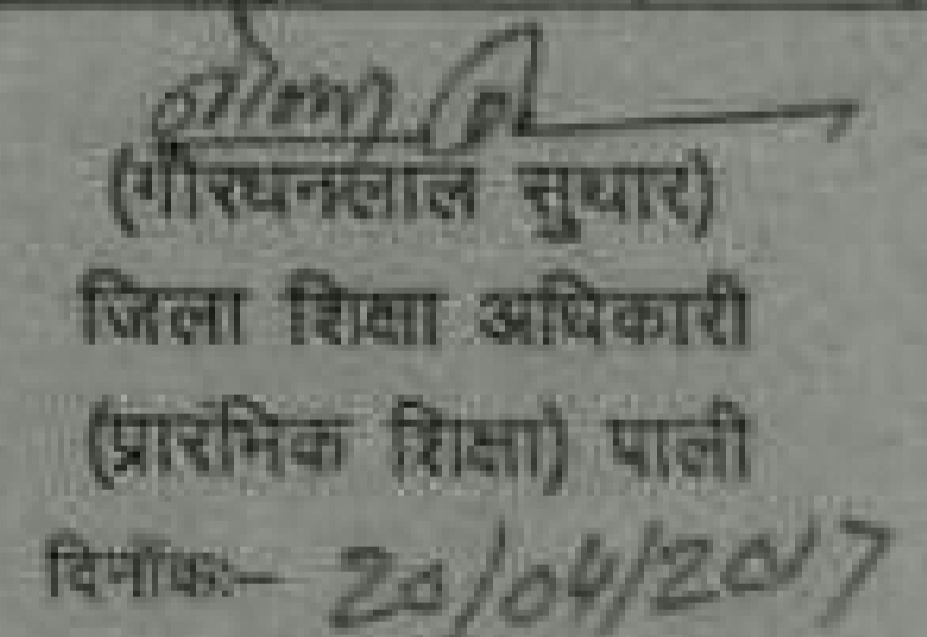 (गोरधनलाल सुथार)
जिला शिक्षा अधिकारी
(प्रारंभिक शिक्षा) पाली
दिनाँकः– 20/04/2017